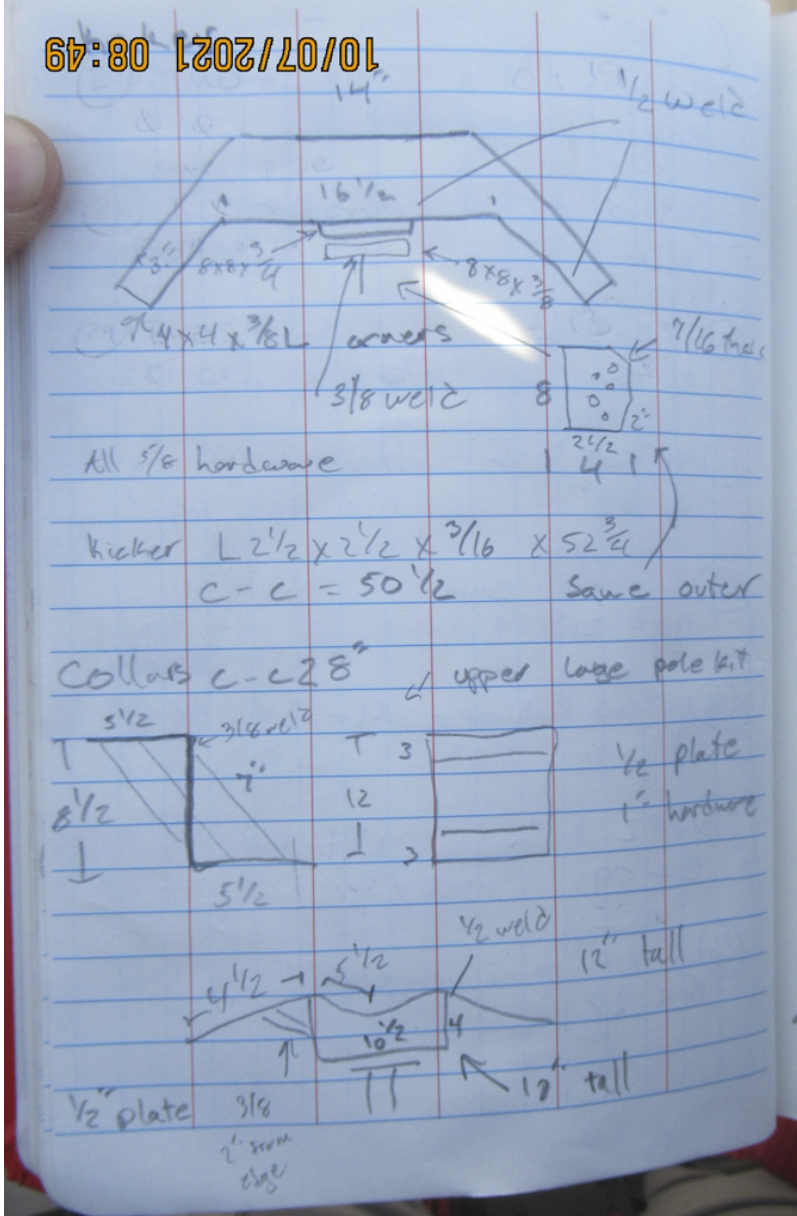 Kicker
10/07/2021 08:49
14"
1/2 weld
16 1/2
3"
8x8x3/4
8x8x3/8
4x4x3/8L corners
7/16 thick
3/8 weld
8
2"
2 1/2
All 5/8 hardware
1 4 1
Kicker L 2 1/2 x 2 1/2 x 3/16 x 52 3/4
c-c = 50 1/2
Same outer
Collars c-c 28"
upper large pole kit
5 1/2
3/8 weld
3
1/2 plate
7"
8 1/2
12
1" hardware
3
5 1/2
1/2 weld
12" tall
4 1/2
5 1/2
10 1/2
4
tall
1/2" plate
3/8
2" from
edge